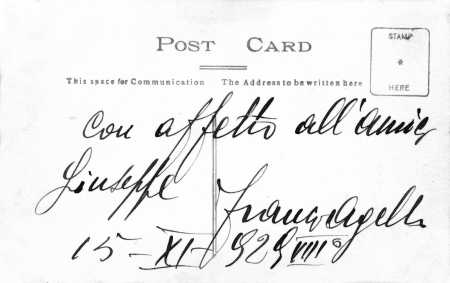 POST CARD
STAMP
HERE
This space for Communication The Address to be written here
Con affetto all'amico
Giuseppe
Franco Agelli
15-XI-929 VIII°